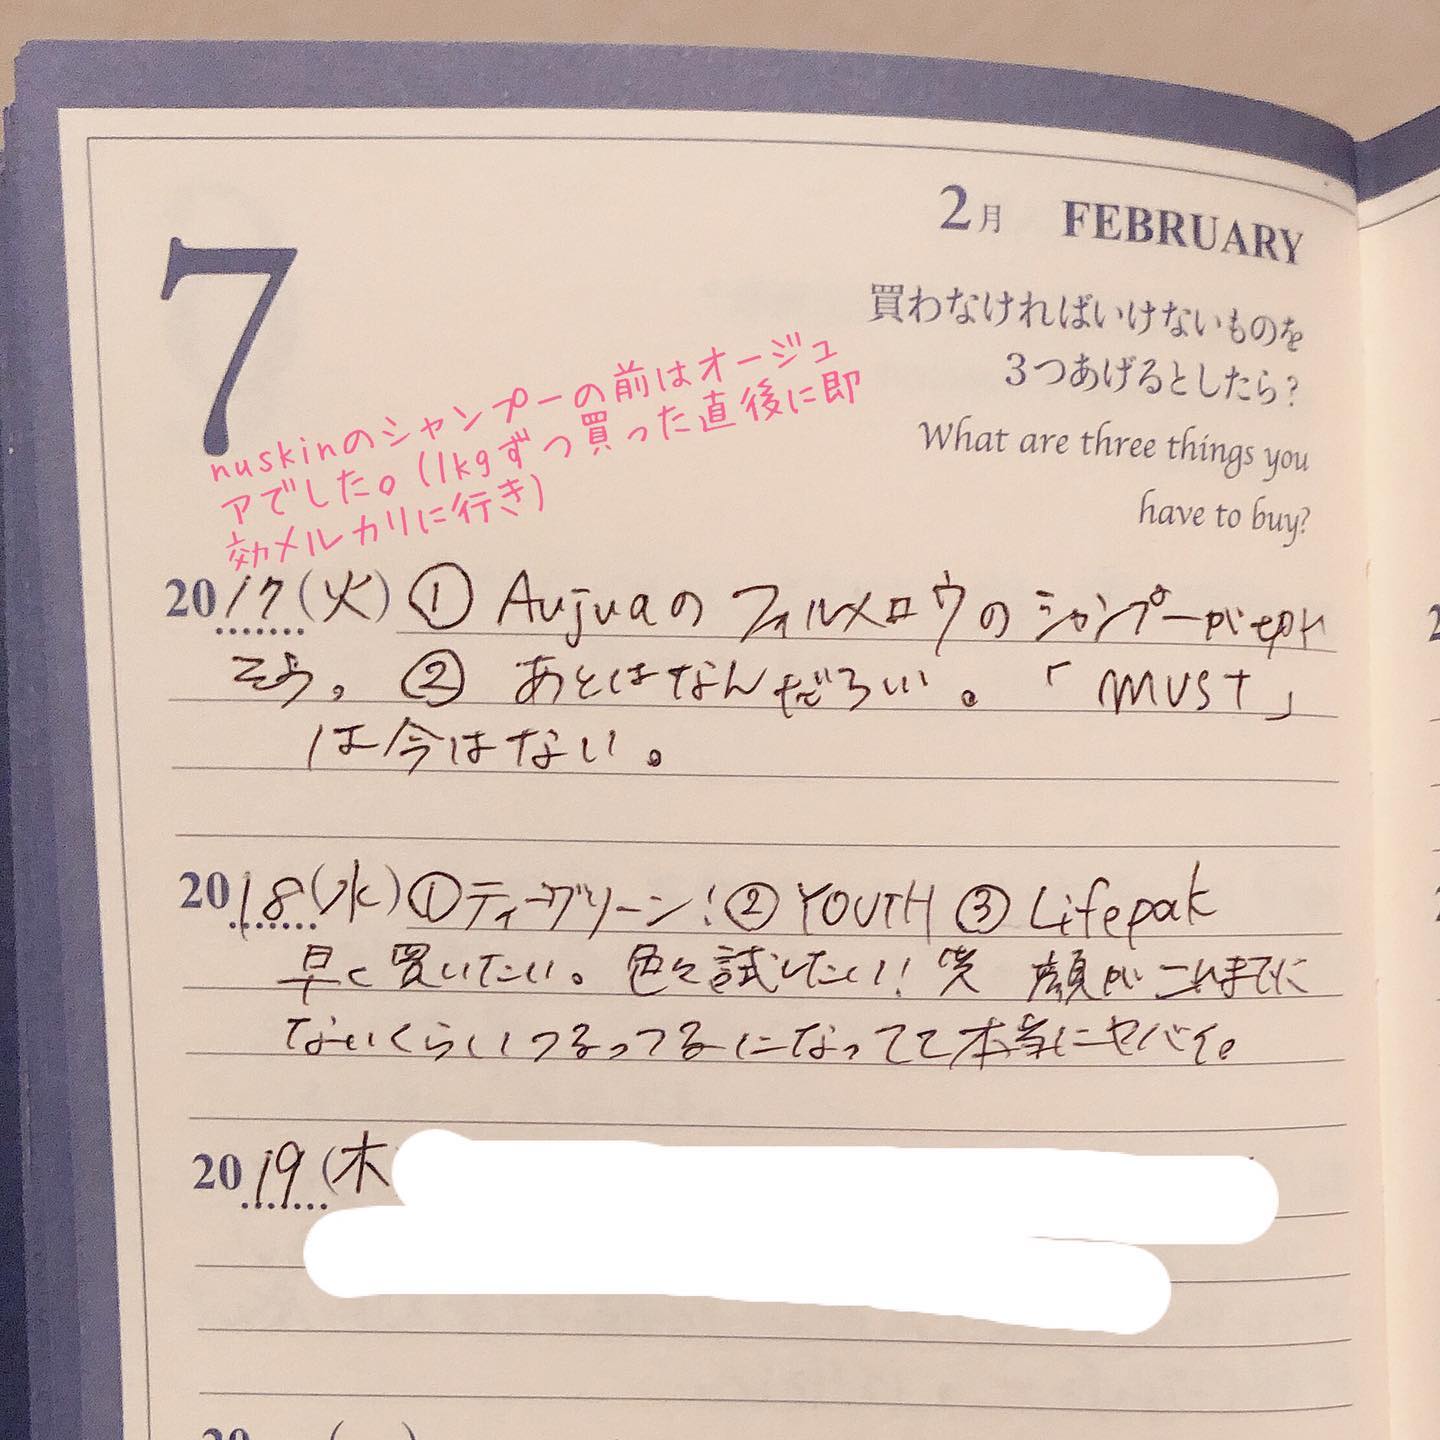 7
2月 FEBRUARY
買わなければいけないものを
3つあげるとしたら?
What are three things you
have to buy?
nuskinのシャンプーの前はオージュ
アでした。(1kgずつ買った直後に即
効メルカリに行き)
2017(火) ① Aujuaのフィルメロウのシャンプーが切れ
そう。 ② あとはなんだろい。「MUST」
は今はない。
2018(水) ①ティーグリーン!② YOUTH ③ Lifepak
早く買いたい。色々試したい!笑 顔がこれまでに
ないくらいつるってるになってて本当にヤバイ。
2019(木)
20 ( )